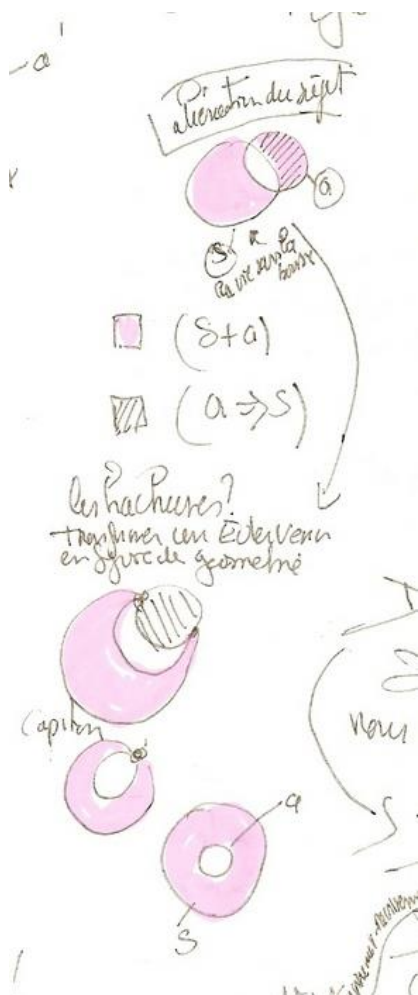 a'
aliénation du sujet
a
S
la vie sans la bourse
(S+a)
(a⇒S)
les hachures?
transformer un Euler Venn
en figure de géométrie
Capiton
nous
a
S
S